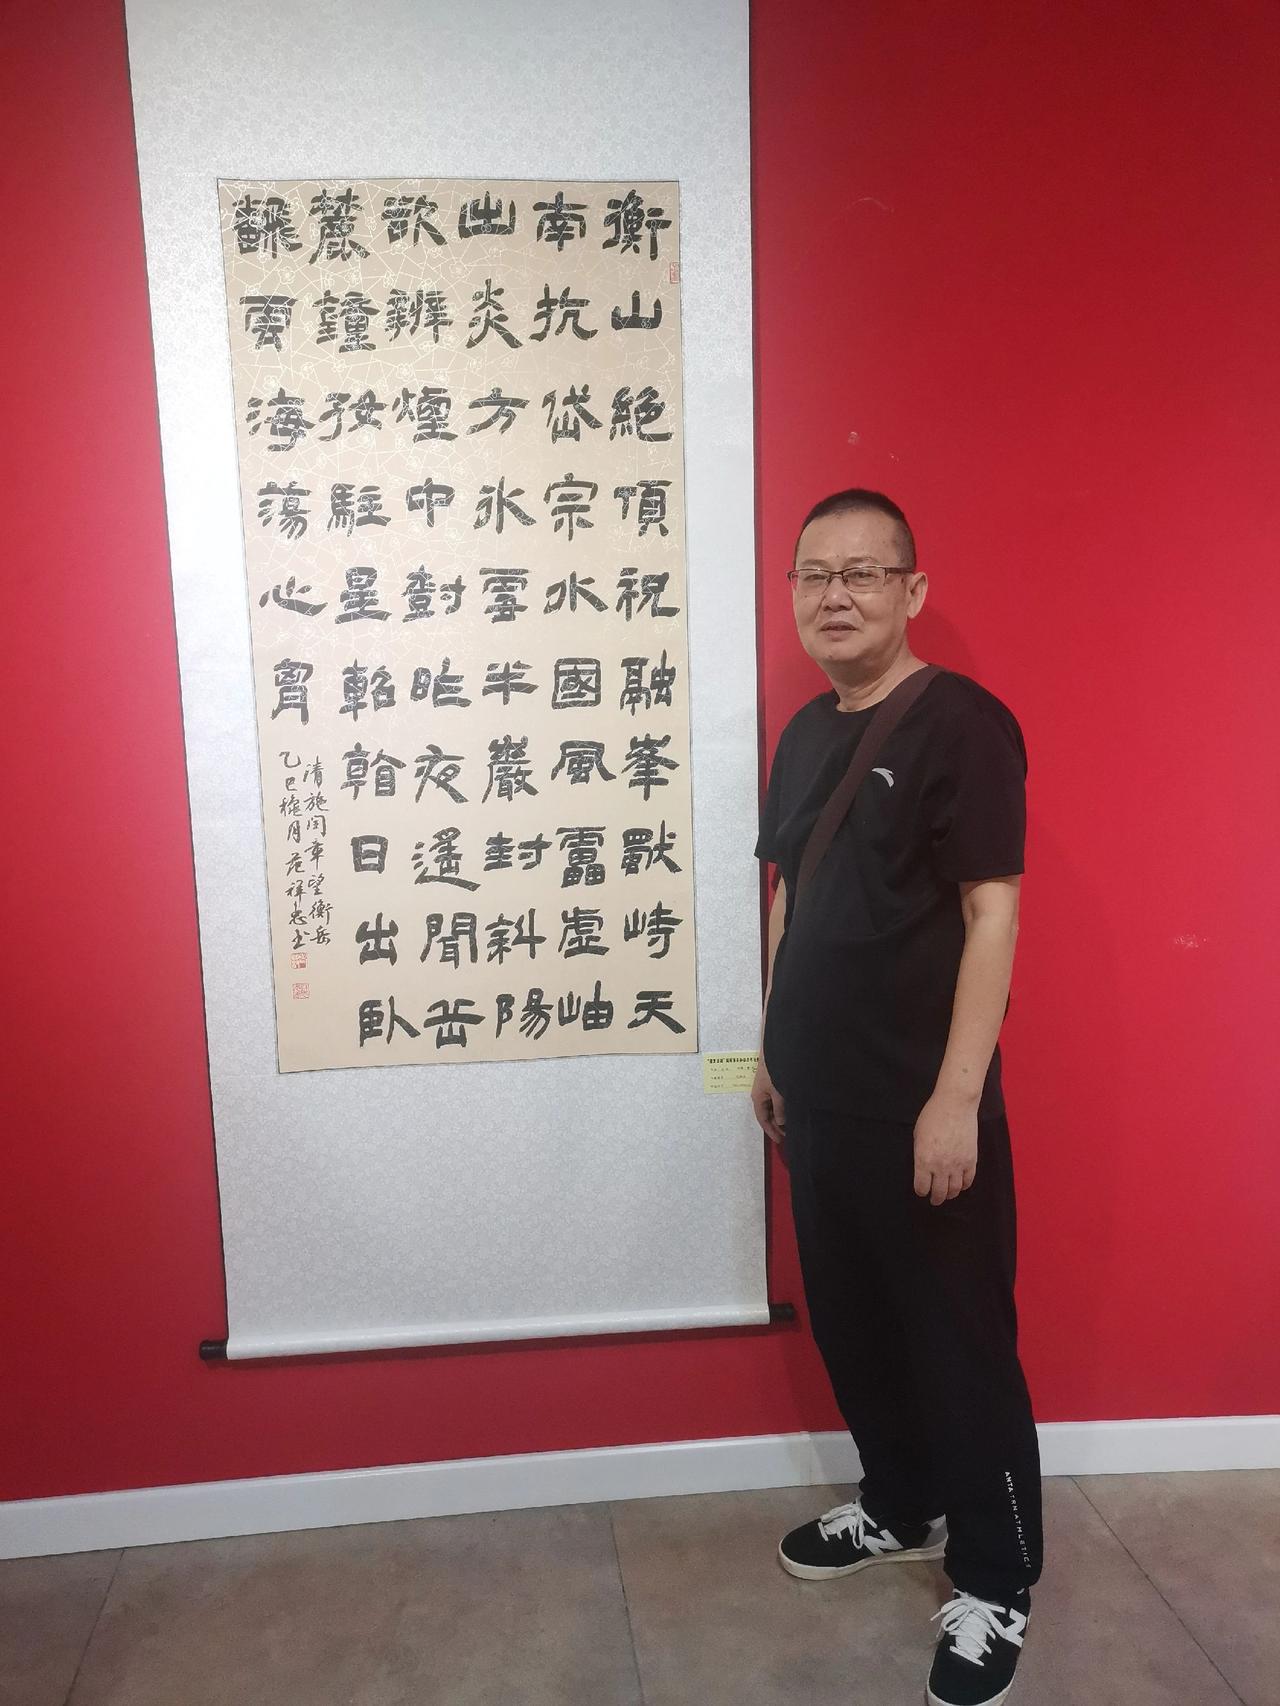 衡山絶頂祝融峯獸峙天
南抗岱宗水國風靁虛岫
出炎方氷雪半巖封斜陽
欲辨煙中對昨夜遙聞岳
麓鐘好駐星軺朝日出臥
雲海蕩心胷
清施閏章望衡岳
乙巳槐月范祥忠书